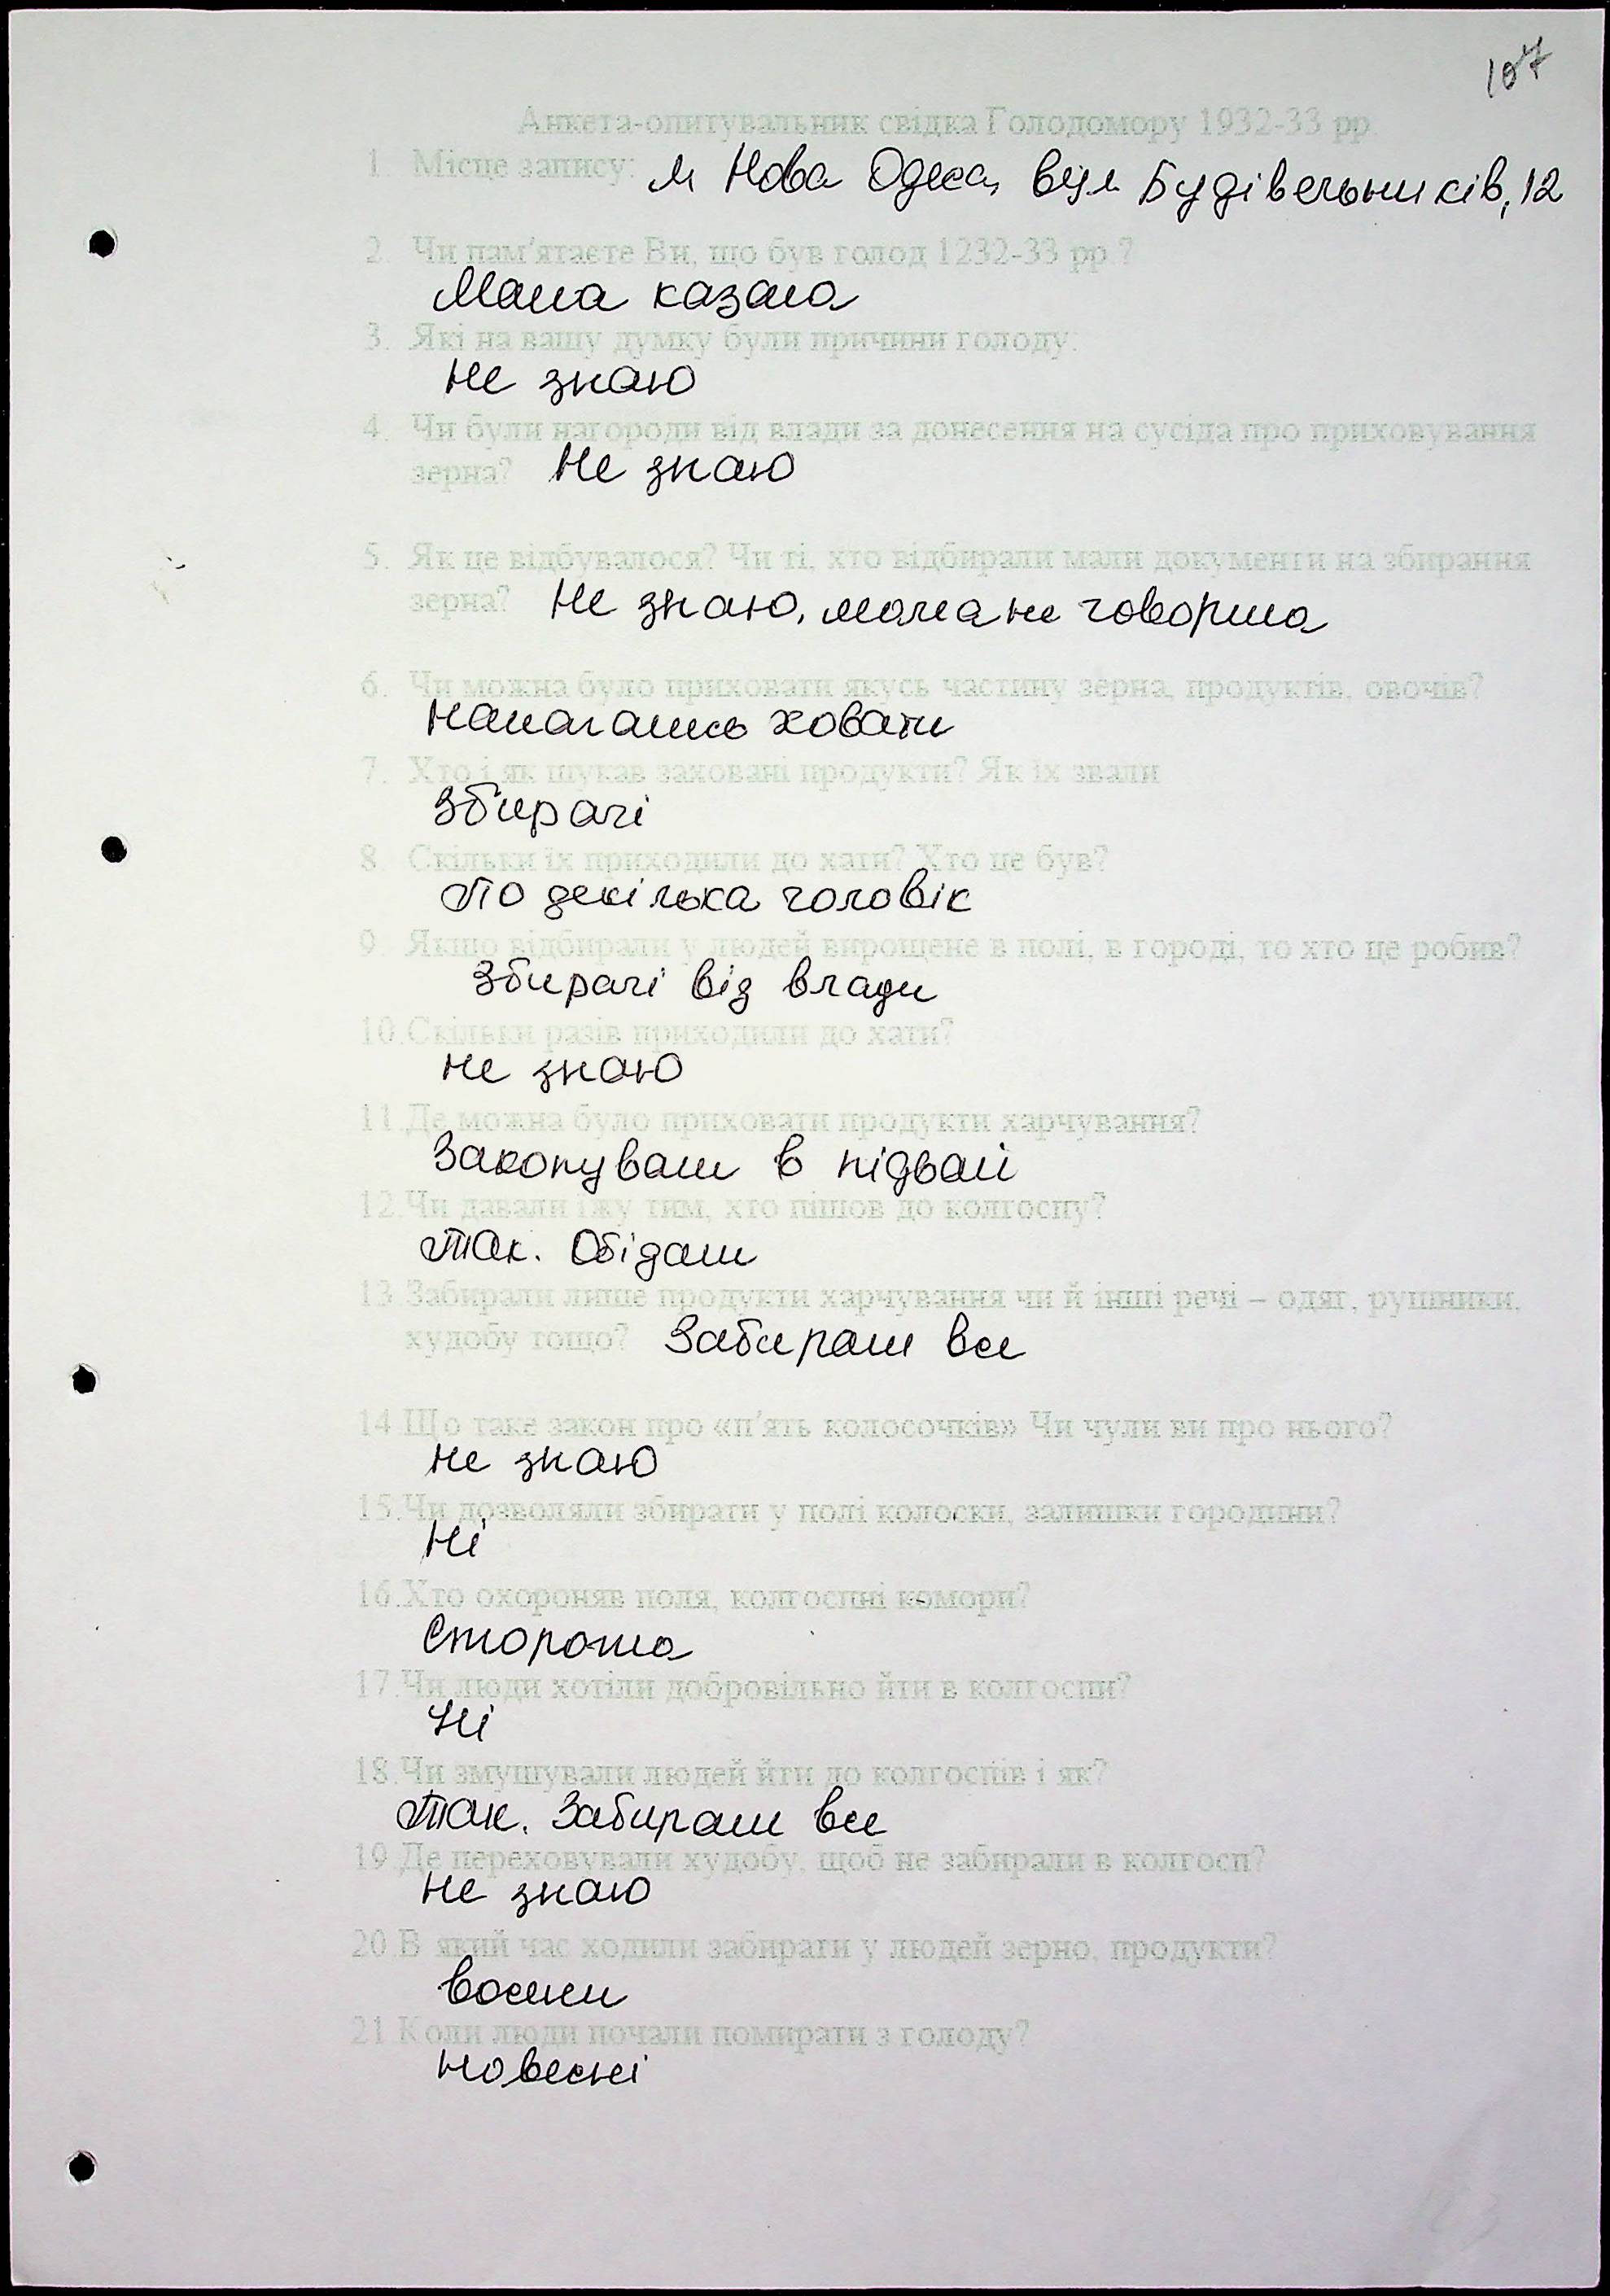 107
Анкета-опитувальник свідка Голодомору 1932-33 рр.
1. Місце запису: м Нова Одеса, вул Будівельників, 12
2. Чи пам'ятаєте Ви, що був голод 1232-33 рр.?
Мама казала
3. Які на вашу думку були причини голоду:
Не знаю
4. Чи були нагороди від влади за донесення на сусіда про приховування
зерна? Не знаю
5. Як це відбувалося? Чи ті, хто відбирали мали документи на збирання
зерна? Не знаю, мама не говорила
6. Чи можна було приховати якусь частину зерна, продуктів, овочів?
Намагались ховати
7. Хто і як шукав заховані продукти? Як їх звали
Збирачі
8. Скільки їх приходили до хати? Хто це був?
По декілька чоловік
9. Якщо відбирали у людей вирощене в полі, в городі, то хто це робив?
Збирачі від влади
10.Скільки разів приходили до хати?
не знаю
11.Де можна було приховати продукти харчування?
Закопували в підвалі
12.Чи давали їжу тим, хто пішов до колгоспу?
Так. Обідали
13.Забирали лише продукти харчування чи й інші речі – одяг, рушники,
худобу тощо? Забирали все
14.Що таке закон про «п'ять колосочків» Чи чули ви про нього?
не знаю
15.Чи дозволяли збирати у полі колоски, залишки городини?
Ні
16.Хто охороняв поля, колгоспні комори?
Сторожа
17.Чи люди хотіли добровільно йти в колгоспи?
Ні
18.Чи змушували людей йти до колгоспів і як?
Так. Забирали все
19.Де переховували худобу, щоб не забирали в колгосп?
Не знаю
20.В який час ходили забирати у людей зерно, продукти?
восени
21.Коли люди почали помирати з голоду?
Навесні